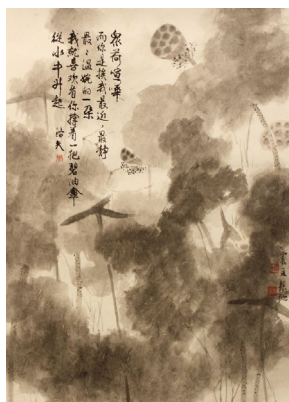 眾荷喧嘩
而你是挨我最近,最靜
最最溫婉的一朵
我就喜歡看你撐着一把碧油傘
從水中升起 洛夫